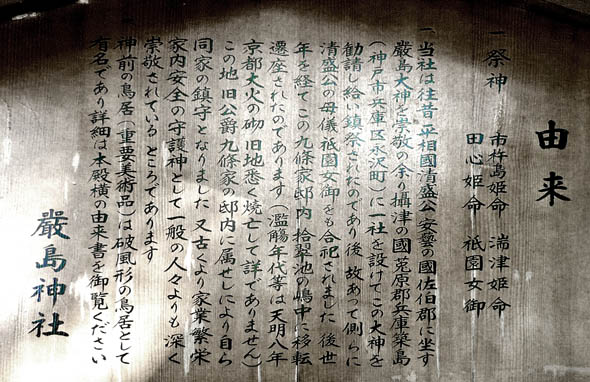 由来
一 祭神 市杵島姫命 湍津姫命
田心姫命 祇園女御
一 当社は往昔 平相國清盛公 安藝の國佐伯郡に坐す
嚴島大神を崇敬の余り 攝津の國菟原郡兵庫築島
(神戸市兵庫区永沢町)に一社を設けてこの大神を
勧請し給い鎮祭されたのであり 後 故あって側らに
清盛公の母儀祇園女御をも合祀されました 後世
年を経てこの九條家邸内 拾翠池の嶋中に移転
遷座されたのであります(濫觴年代等は天明八年
京都大火の砌 旧地悉く焼亡して詳でありません)
この地 旧公爵九條家の邸内に属せしにより自ら
同家の鎮守となりました 又古くより家業繁栄
家内安全の守護神として一般の人々よりも 深く
崇敬されているところであります
一 神前の鳥居(重要美術品)は破風形の鳥居として
有名であり詳細は本殿横の由来書を御覧ください
嚴島神社